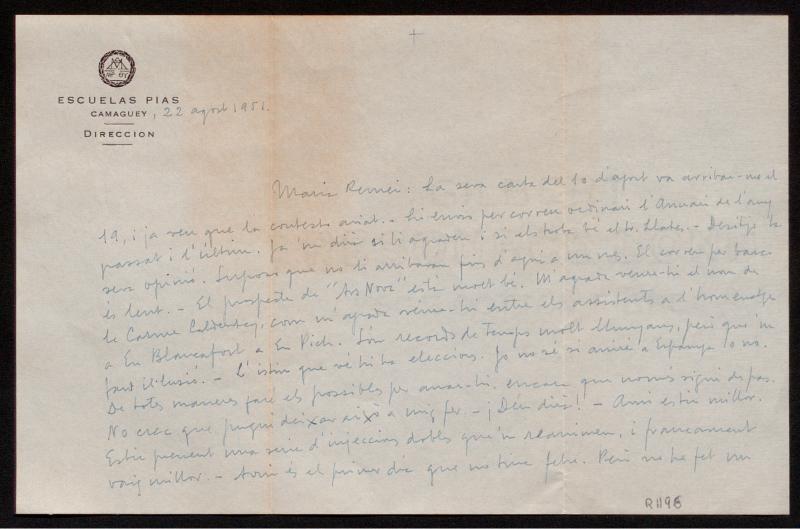 ESCUELAS PIAS
CAMAGUEY, 22 agost 1951.
DIRECCION
Maria Remei: La seva carta del 10 d'agost va arribar-me el
19, i ja veu que la contesto aviat. - Li envio per correu ordinari l'Anuari de l'any
passat i l'últim. Ja m dirà si li agraden i si els troba bé el Sr. Llates. - Desitjo la
seva opinió. Suposo que no li arribaran fins d'aquí a un mes. El correu per barco
és lent. - El prospecte de "Ars Nova" està molt bé. M'agrada veure-hi el nom de
la Carme Caldentey, com m'agrada veure-hi entre els assistents a l'homenatge
a En Blancafort a En Pich. Són records de temps molt llunyans, però que 'm
fan il·lusió. - L' que vé hi ha eleccions. Jo no sé si aniré a Espanya o no.
De totes maneres faré els possibles per anar-hi. encara que només sigui de pas.
No crec que pugui deixar això a mig fer. - ¡Déu dirà! - Ara estic millor.
Estic prenent una serie d'injeccions dobles que 'm reanimen, i francament
vaig millor. - Avui és el primer dia que no tinc febre. Però no he fet un
R1196